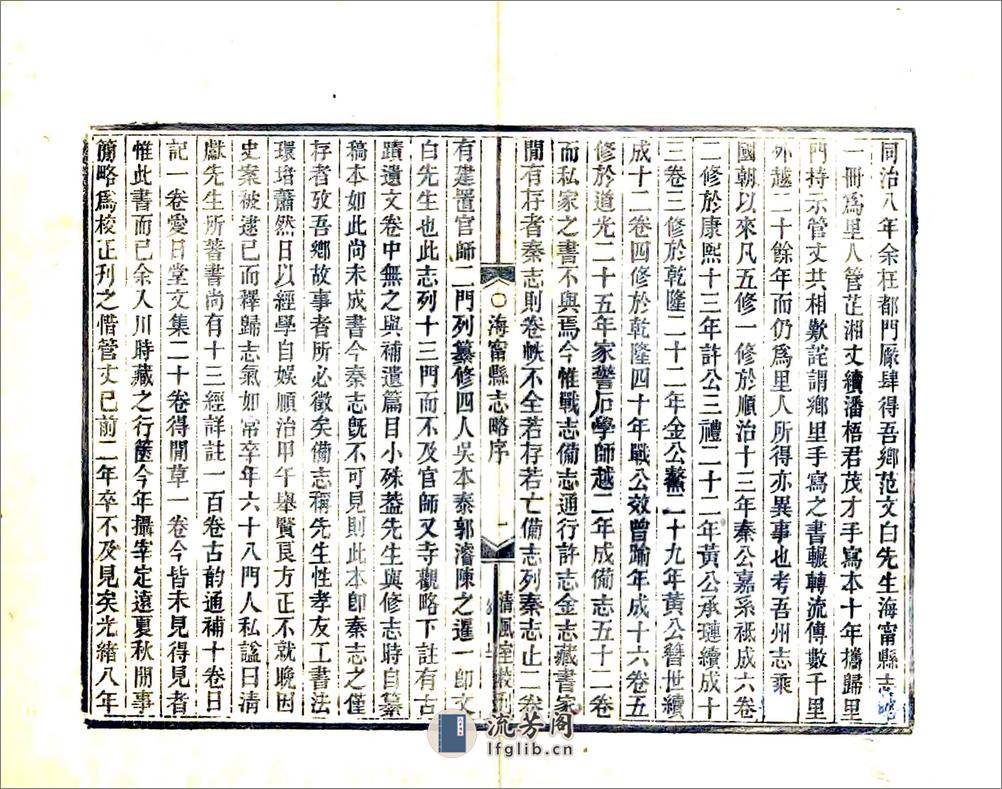 同治八年余在都門厰肆得吾鄉范文白先生海甯縣志
一冊爲里人管芷湘丈續潘梧君茂才手寫本十年攜歸里
門持示管丈共相歎詫謂鄉里手寫之書輾轉流傳數千里
外越二十餘年而仍爲里人所得亦異事也考吾州志乘
國朝以來凡五修一修於順治十三年秦公嘉系祗成六卷
二修於康熙十三年許公三禮二十二年黃公承璉續成十
三卷三修於乾隆二十二年金公鰲二十九年黃公簪世續
成十二卷四修於乾隆四十年戰公效曾踰年成十六卷五
修於道光二十五年家警石學師越二年成備志五十二卷
而私家之書不與焉今惟戰志備志通行許志金志藏書家
閒有存者秦志則卷帙不全若存若亡備志列秦志止二卷
海甯縣志略序
一
清風室校刊
有建置官師二門列纂修四人吳本泰郭濬陳之暹一卽文
白先生也此志列十三門而不及官師又寺觀略下註有古
蹟遺文卷中無之與補遺篇目小殊葢先生與修志時自纂
稿本如此尚未成書今秦志旣不可見則此本卽秦志之僅
存者攷吾鄉故事者所必徵矣備志稱先生性孝友工書法
環堵蕭然日以經學自娛順治甲午舉賢良方正不就晚因
史案被逮已而釋歸志氣如常卒年六十八門人私諡曰淸
獻先生所著書尚有十三經詳註一百卷古韵通補十卷日
記一卷愛日堂文集二十卷得閒草一卷今皆未見得見者
惟此書而已余入川時藏之行篋今年攝宰定遠夏秋閒事
簡略爲校正刊之惜管丈已前二年卒不及見矣光緖八年
流芳阁
lfglib.cn